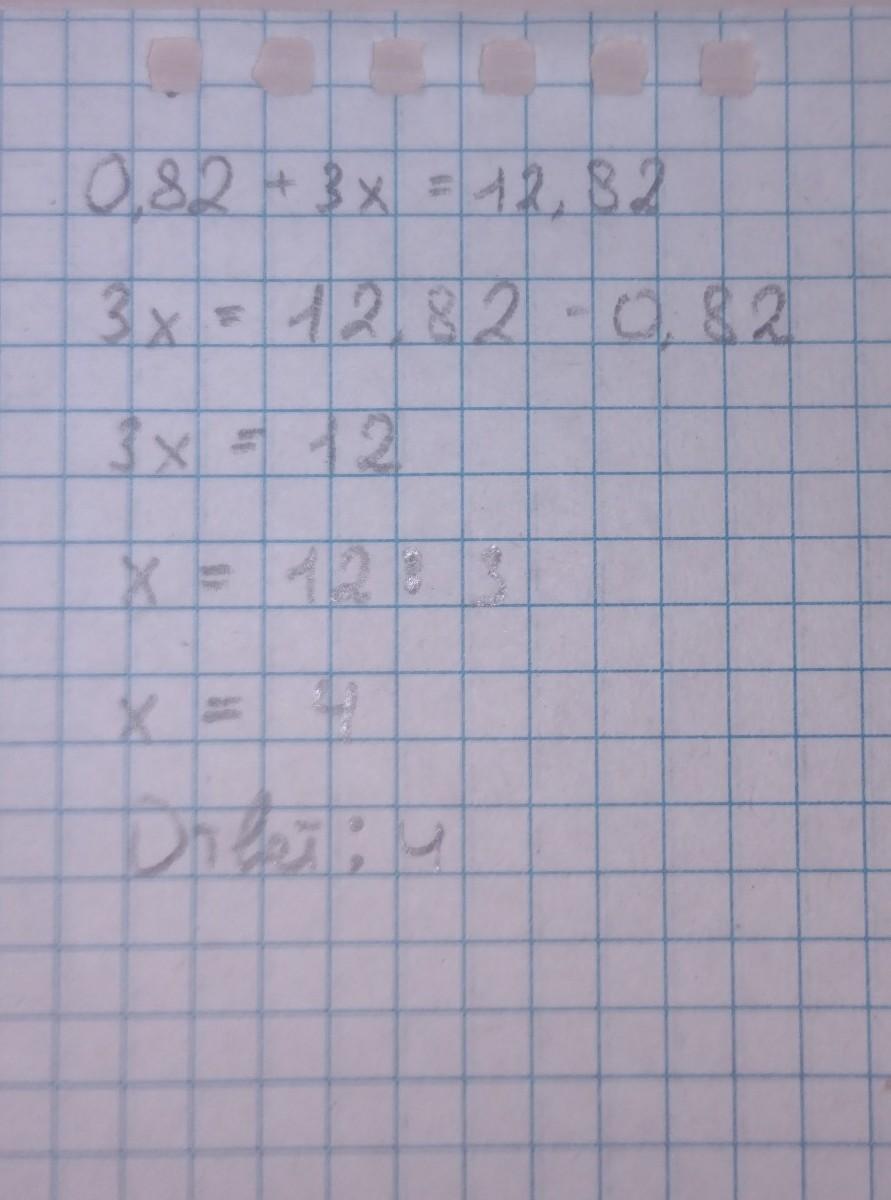 0,82 + 3x = 12,82
3x = 12,82 - 0,82
3x = 12
x = 12 : 3
x = 4
Ответ: 4